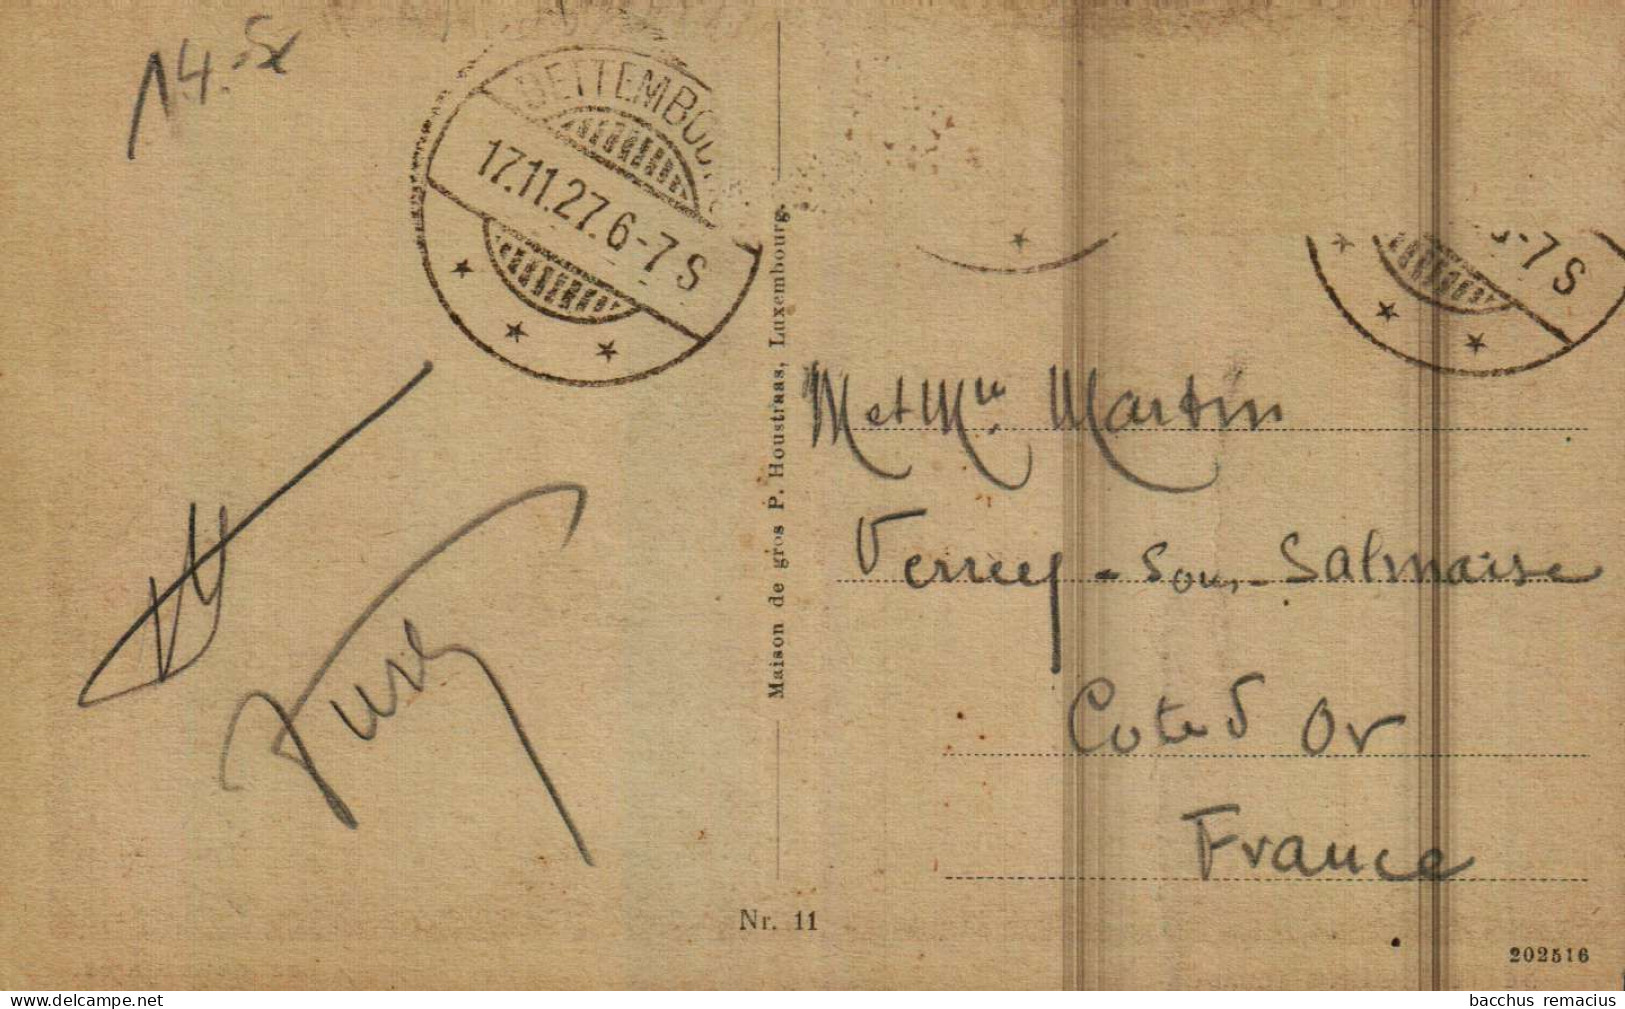 BETTEMBOU
17.11.27.6-7 S
-7 S
Maison de gros P. Houstraas, Luxembourg.
M et Mme Martin
Verrey-sous-Salmaise
Cote d Or
France
Nr. 11
202516
delcampe.net
bacchus_remacius